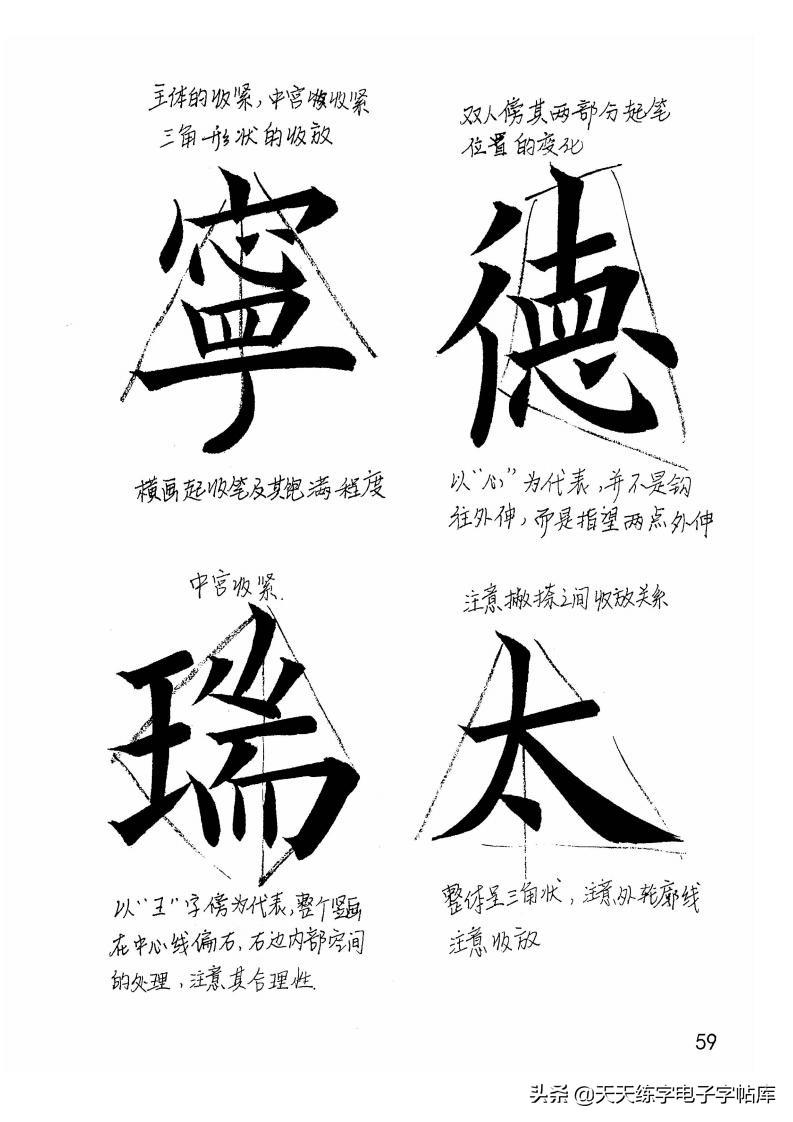 主体的收紧，中宫收收紧
三角形状的收放
寧
横画起收笔及其饱满程度
双人傍其两部分起笔
位置的变化
德
以“心”为代表，并不是钩
往外伸，而是指望两点外伸
中宫收紧.
瑞
以“王”字傍为代表，整个竖画
在中心线偏右，右边内部空间
的处理，注意其合理性.
注意撇捺之间收放关系
太
整体呈三角状，注意外轮廓线
注意收放
59
头条 @天天练字电子字帖库